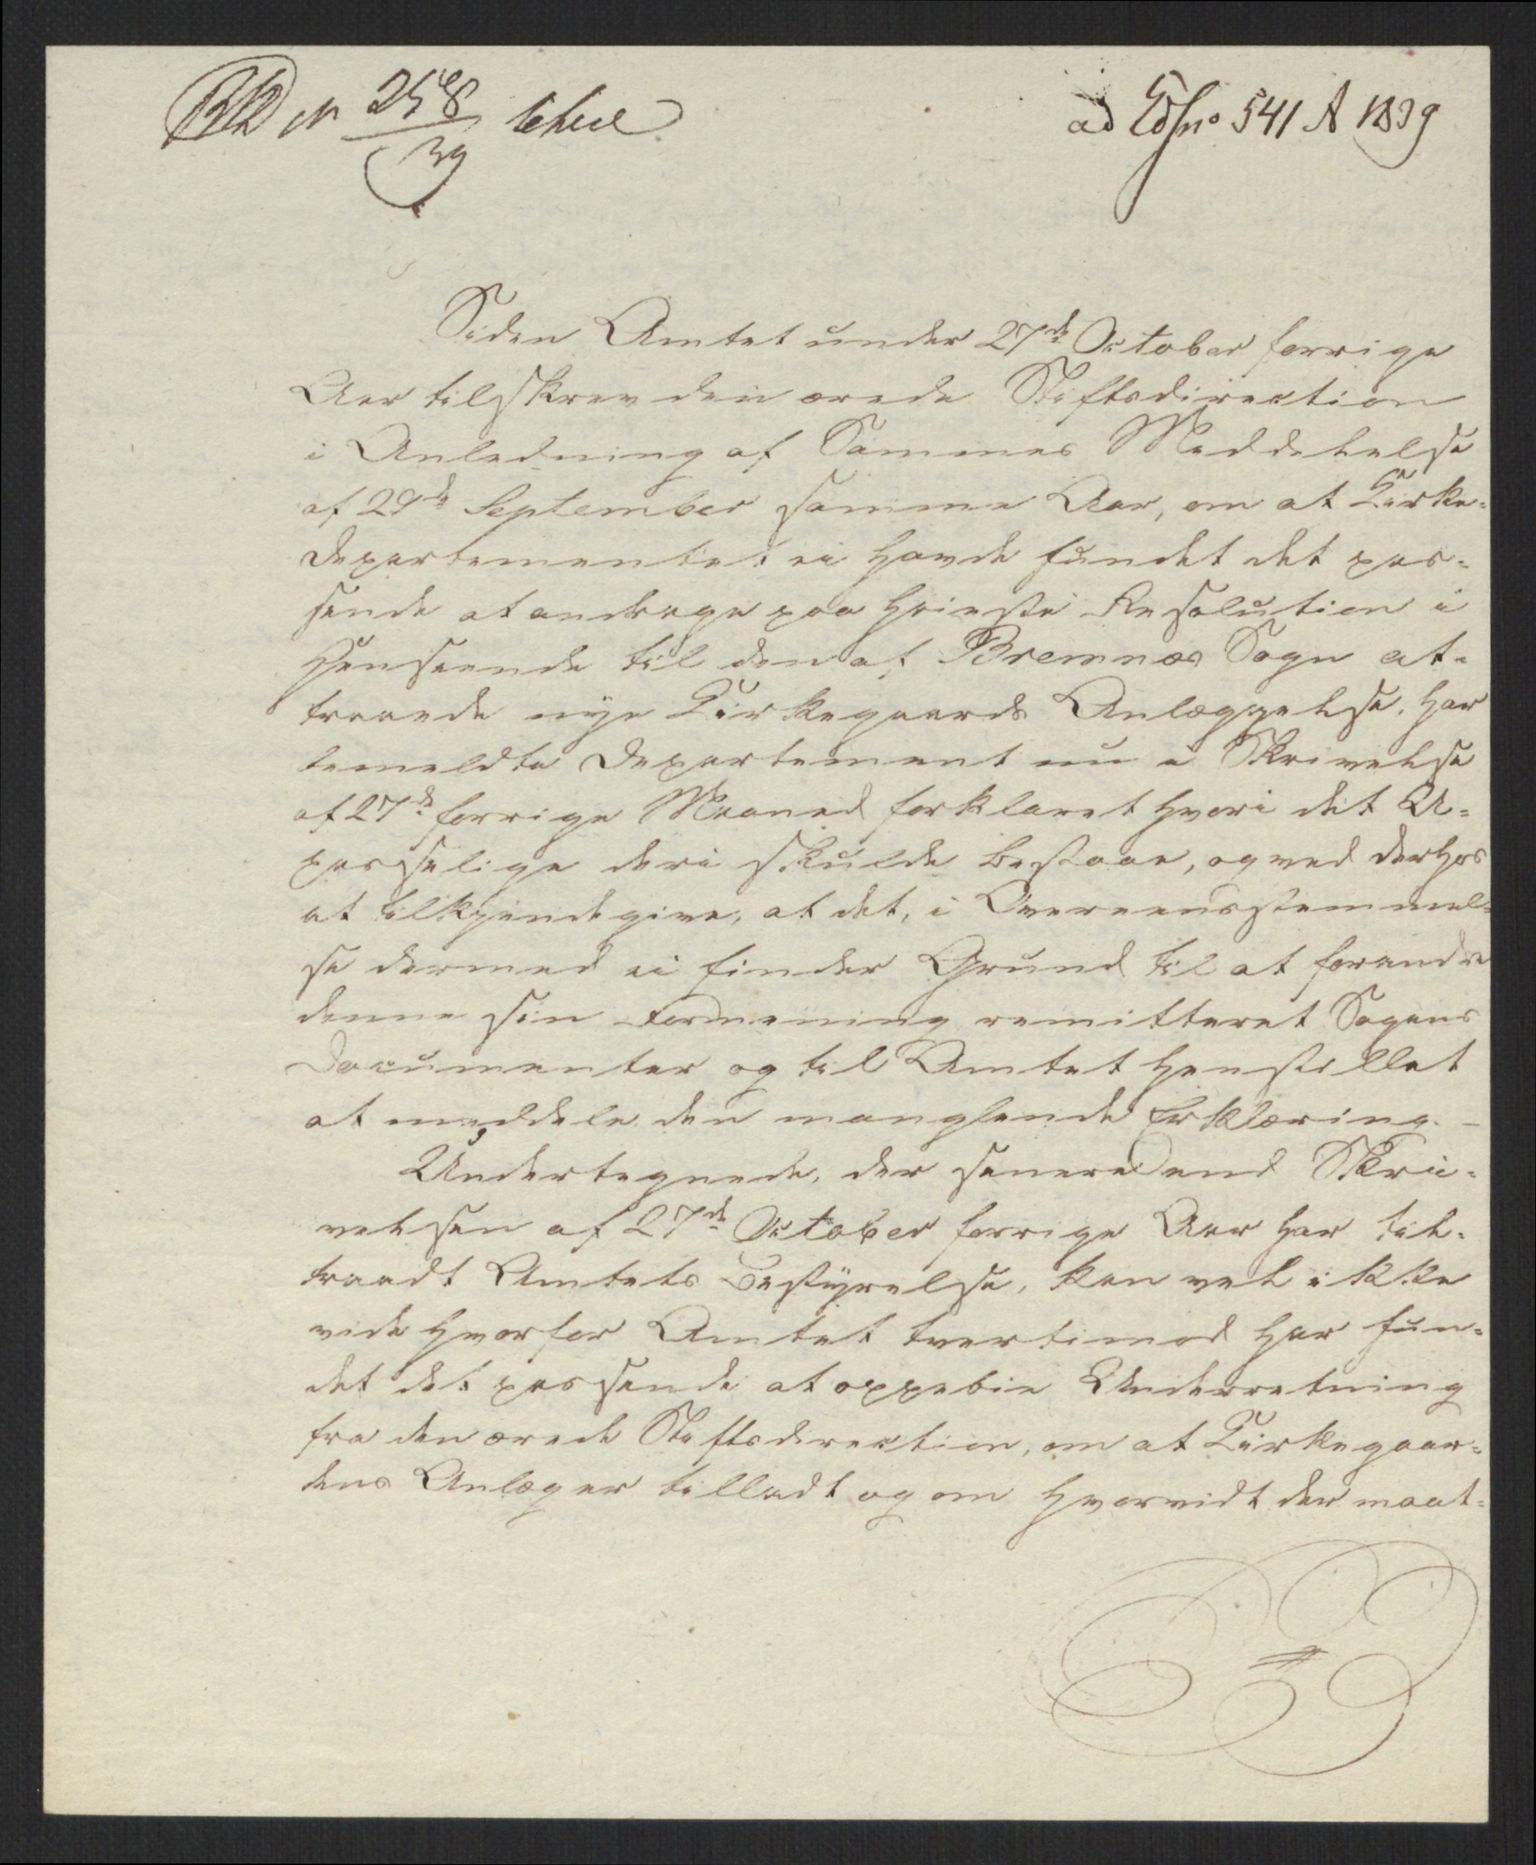 258
39
ad 541 A 1839
Siden Amtet under 27de October forrige
Aar tilskrev den ærede Stiftsdirection
i Anledning af Sammes Meddelelse
af 29de September samme Aar, om at Kirke-
departementet ei havde fundet det pas-
sende at andrage paa Høieste Resolution i
Henseende til den af Bremnæs Sogn at-
traaede nye Kirkegaards Anlæggelse, har
bemeldte Departement nu i Skrivelse
af 27de forrige Maaned forklaret hvori det U-
passelige deri skulde bestaae, og ved derhos
at tilkjendegive, at det, i Overeensstemmel-
se dermed ei finder Grund til at forandre
denne sin Formening remitteret Sagens
Documenter og til Amtet henstillet
at meddele den manglende Erklæring. –
Undertegnede, der senere end Skri-
velsen af 27de October forrige Aar har til-
traadt Amtets Bestyrelse, kan vel ikke
vide hvorfor Amtet tvertimod har fun-
det det passende at oppebie Underretning
fra den ærede Stiftsdirection, om at Kirkegaar-
dens Anlæg er tilladt og om hvorvidt der maat-